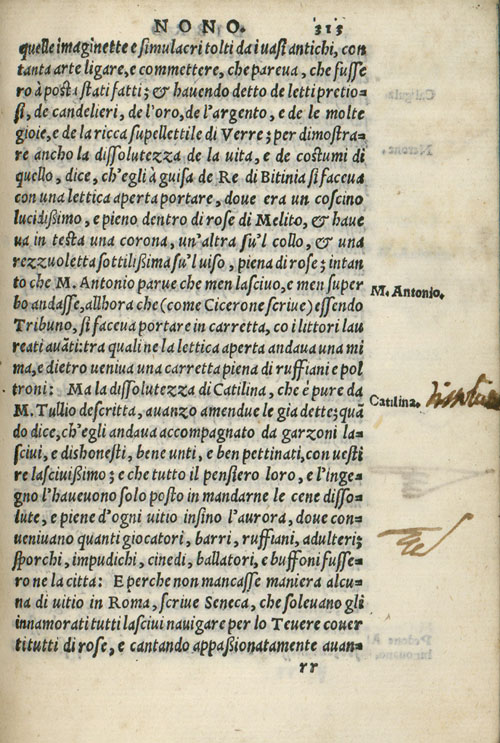 NONO. 313
quelle imaginette e simulacri tolti da i uasi antichi, con
tanta arte ligare, e commettere, che pareua, che fusse
ro à posta stati fatti; & hauendo detto de letti pretio-
si, de candelieri, de l'oro, de l'argento, e de le molte
gioie, e de la ricca supellettile di Verre; per dimostra-
re ancho la dissolutezza de la uita, e de costumi di
quello, dice, ch'egli à guisa de Re di Bitinia si faceua
con una lettica aperta portare, doue era un coscino
lucidissimo, e pieno dentro di rose di Melito, & haue
ua in testa una corona, un'altra su'l collo, & una
rezzuoletta sottilissima su'l uiso, piena di rose; intan
to che M. Antonio parue che men lasciuo, e men super
bo andasse, allhora che (come Cicerone scriue) essendo
Tribuno, si faceua portare in carretta, co i littori lau
reati auāti: tra quali ne la lettica aperta andaua una mi
ma, e dietro ueniua una carretta piena di ruffiani e pol
troni: Ma la dissolutezza di Catilina, che è pure da
M. Tullio descritta, auanzo amendue le gia dette; quā
do dice, ch'egli andaua accompagnato da garzoni la-
sciui, e dishonesti, bene unti, e ben pettinati, con uesti
re lasciuissimo; e che tutto il pensiero loro, e l'inge-
gno l'haueuono solo posto in mandarne le cene disso-
lute, e piene d'ogni uitio insino l'aurora, doue con-
ueniuano quanti giocatori, barri, ruffiani, adulteri;
sporchi, impudichi, cinedi, ballatori, e buffoni fusse-
ro ne la citta: E perche non mancasse maniera alcu-
na di uitio in Roma, scriue Seneca, che soleuano gli
innamorati tutti lasciui nauigare per lo Teuere couer
ti tutti di rose, e cantando appassionatamente auan-
rr
M. Antonio.
Catilina.